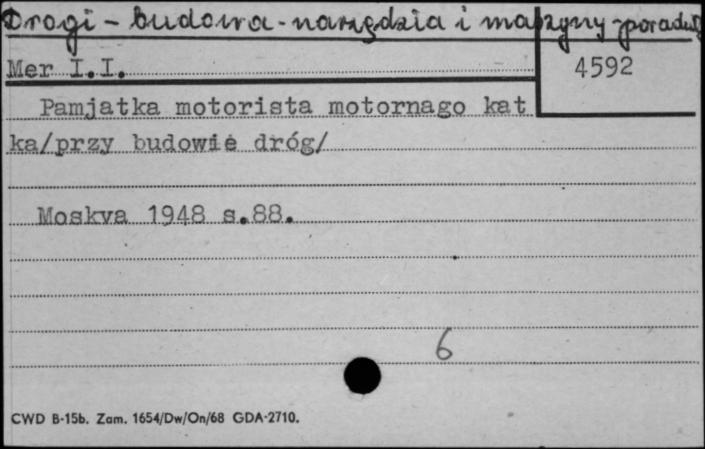 Drogi - budowa - narzędzia i maszyny - poradnik
Mer I.I.
4592
Pamjatka motorista motornago kat
ka/przy budowie dróg/
Moskva 1948 s.88.
6
CWD B-15b. Zam. 1654/Dw/On/68 GDA-2710.